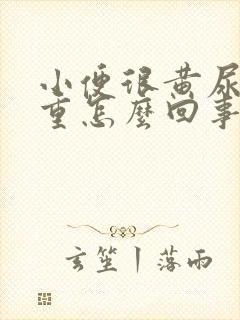 小便很黄尿
重怎麼回事
玄筌丨落雨